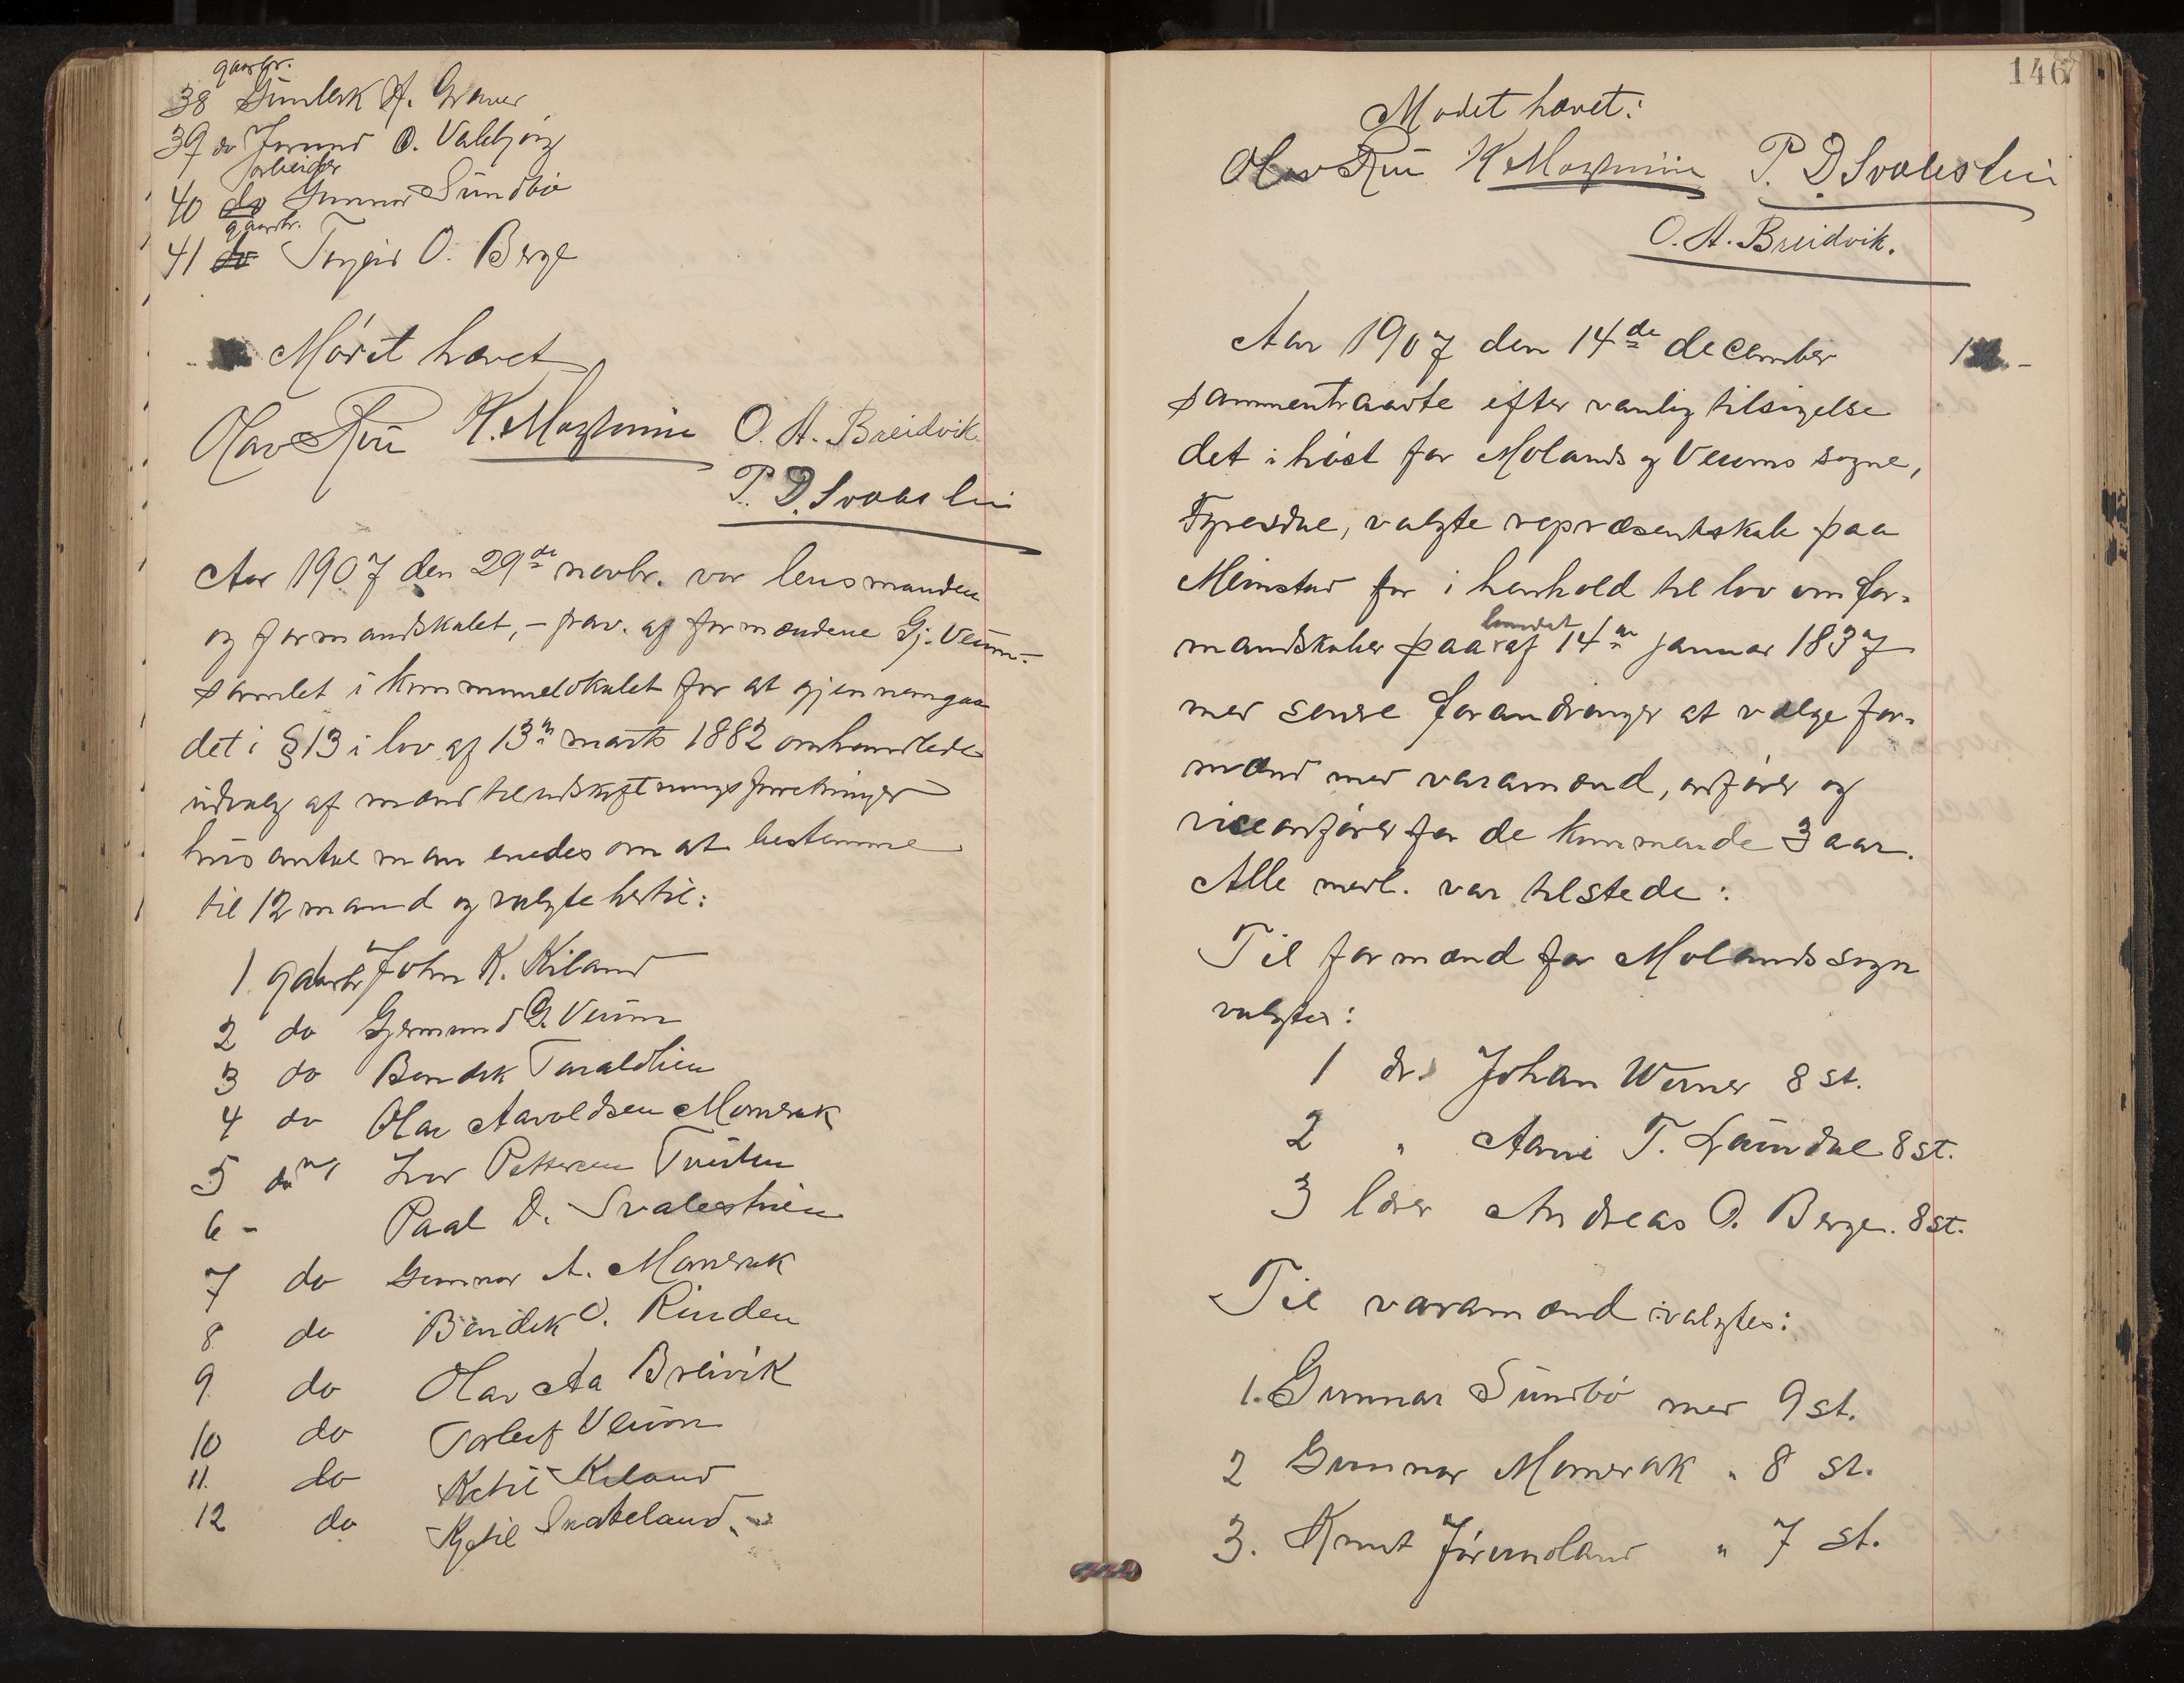 gaardbr.
38 Gunlek H. Graver
39 do Jorund O. Valebjørg
arbeider
40 do Gunnar Sundbø
gaardbr.
41 do Torgeir O. Berge
Mødet hævet
Olav Rui K. Moghuin O. A. Breidvik
P. D. Svalestuen
Aar 1907 den 29de novbr. var lensmanden
og formandskabet, – frav. af formændene Gj. Veum –
samlet i kommunelokalet for at gjennemgaa
det i § 13 i lov af 13n marts 1882 omhandlede
udvalg af mænd til udskiftningsforretninger
hvis antal man enedes om at bestemme
til 12 mand og valgte hertil:
1. gaardbr John K. Kiland
2 do Gjermund G. Veum
3 do Bendik Taraldlien
4 do Olav Aavoldsen Momrak
5 do Ivar Pettersen Tveiten
6 – Paal D. Svalestuen
7 do Gunnar A. Momrak
8 do Bendik O. Rinden
9 do Olav Aa Breivik
10 do Torleif Veum
11. do Ketil Kiland
12 do Kjetil Skateland
146
Mødet hævet:
Olav Rui K Moghuin P. D Svalestuen
O. A. Breidvik.
Aar 1907 den 14de december
sammentraadte efter vanlig tilsigelse
det i høst for Molands og Veums sogne,
Fyresdal, valgte repræsentskab paa
Meinstad for i henhold til lov om for-
mandskaber paa landet af 14de januar 1837
med senere forandringer at vælge for-
mænd med varamænd, ordfører og
viceordfører for de kommende 3 aar.
Alle medl. var tilstede:
Til formænd for Molands sogn
valgtes:
1 dr. Johan Werner 8 st.
2 " Aani T. Lauvdal 8 st.
3 lærer Andreas O. Berge. 8 st.
Til varamænd valgtes:
1. Gunnar Sundbø med 9 st.
2 Gunnar Momrak " 8 st.
3. Knut Jørundland " 7 st.